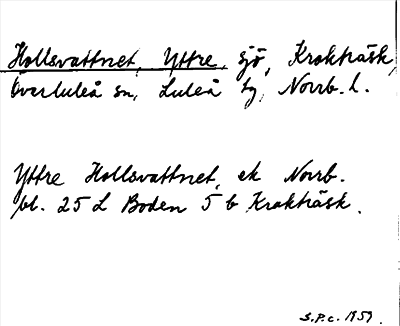 Hollsvattnet, Yttre, sjö, Krokträsk,
Överluleå sn, Luleå tg, Norrb. l.
Yttre Hollsvattnet, ek Norrb.
bl. 25 L Boden 5 b Krokträsk.
S.P.c. 1959.